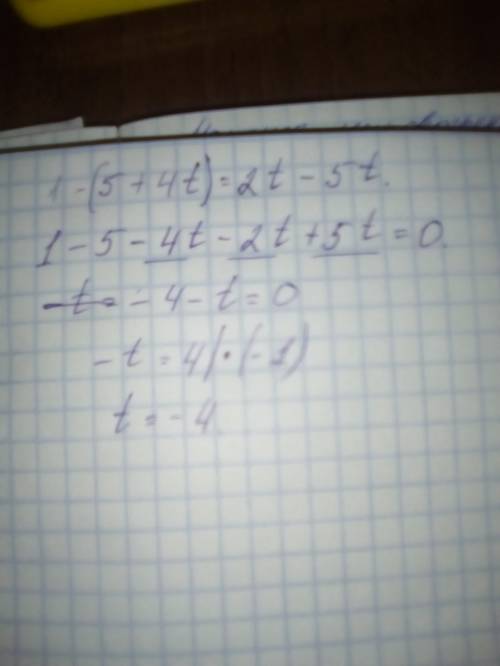 1 - (5 + 4t) = 2t - 5t.
1 - 5 - 4t - 2t + 5t = 0.
-t = - 4 - t = 0
- t = 4 | · (-1)
t = - 4